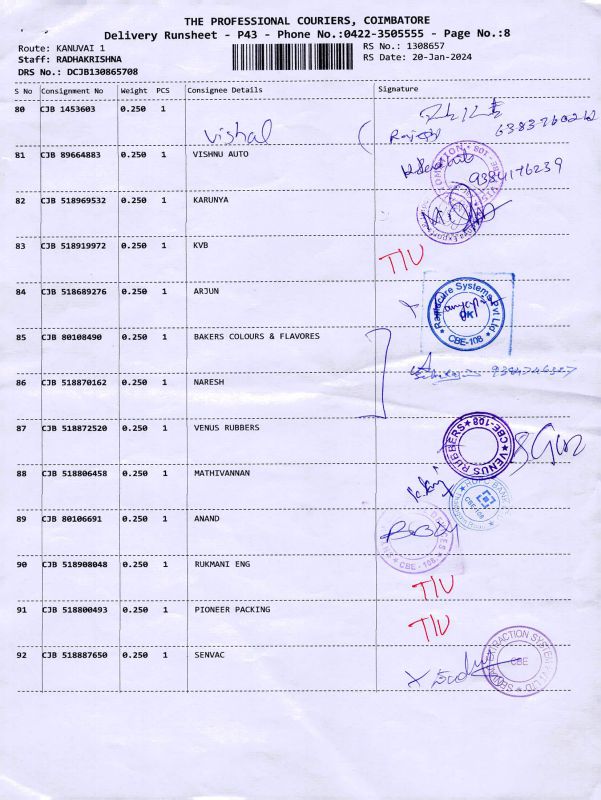 THE PROFESSIONAL COURIERS, COIMBATORE
Delivery Runsheet - P43 - Phone No.:0422-3505555 - Page No.:8
Route: KANUVAI 1 RS No.: 1308657
Staff: RADHAKRISHNA RS Date: 20-Jan-2024
DRS No.: DCJB130865708
S No Consignment No Weight PCS Consignee Details Signature
80 CJB 1453603 0.250 1
vishal
81 CJB 89664883 0.250 1 VISHNU AUTO
9384176239
82 CJB 518969532 0.250 1 KARUNYA
83 CJB 518919972 0.250 1 KVB
T/U
84 CJB 518689276 0.250 1 ARJUN
Ramcare Systems Pvt Ltd
CBE-108
85 CJB 80108490 0.250 1 BAKERS COLOURS & FLAVORES
86 CJB 518870162 0.250 1 NARESH
87 CJB 518872520 0.250 1 VENUS RUBBERS
VENUS RUBBERS CBE-108
88 CJB 518806458 0.250 1 MATHIVANNAN
89 CJB 80106691 0.250 1 ANAND
CBE - 108
90 CJB 518908048 0.250 1 RUKMANI ENG
T/U
91 CJB 518800493 0.250 1 PIONEER PACKING
T/U
92 CJB 518887650 0.250 1 SENVAC
CBE